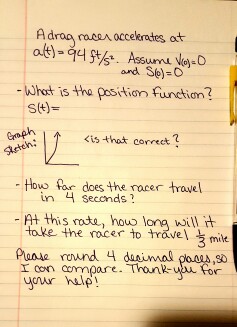 A drag racer accelerates at
a(t) = 94 ft/s². Assume V(0)=0
and S(0)=0
- What is the position function?
S(t)=
Graph
sketch:
<is that correct?
- How far does the racer travel
in 4 seconds?
- At this rate, how long will it
take the racer to travel 1/3 mile
Please round 4 decimal places, so
I can compare. Thank-you for
your help!